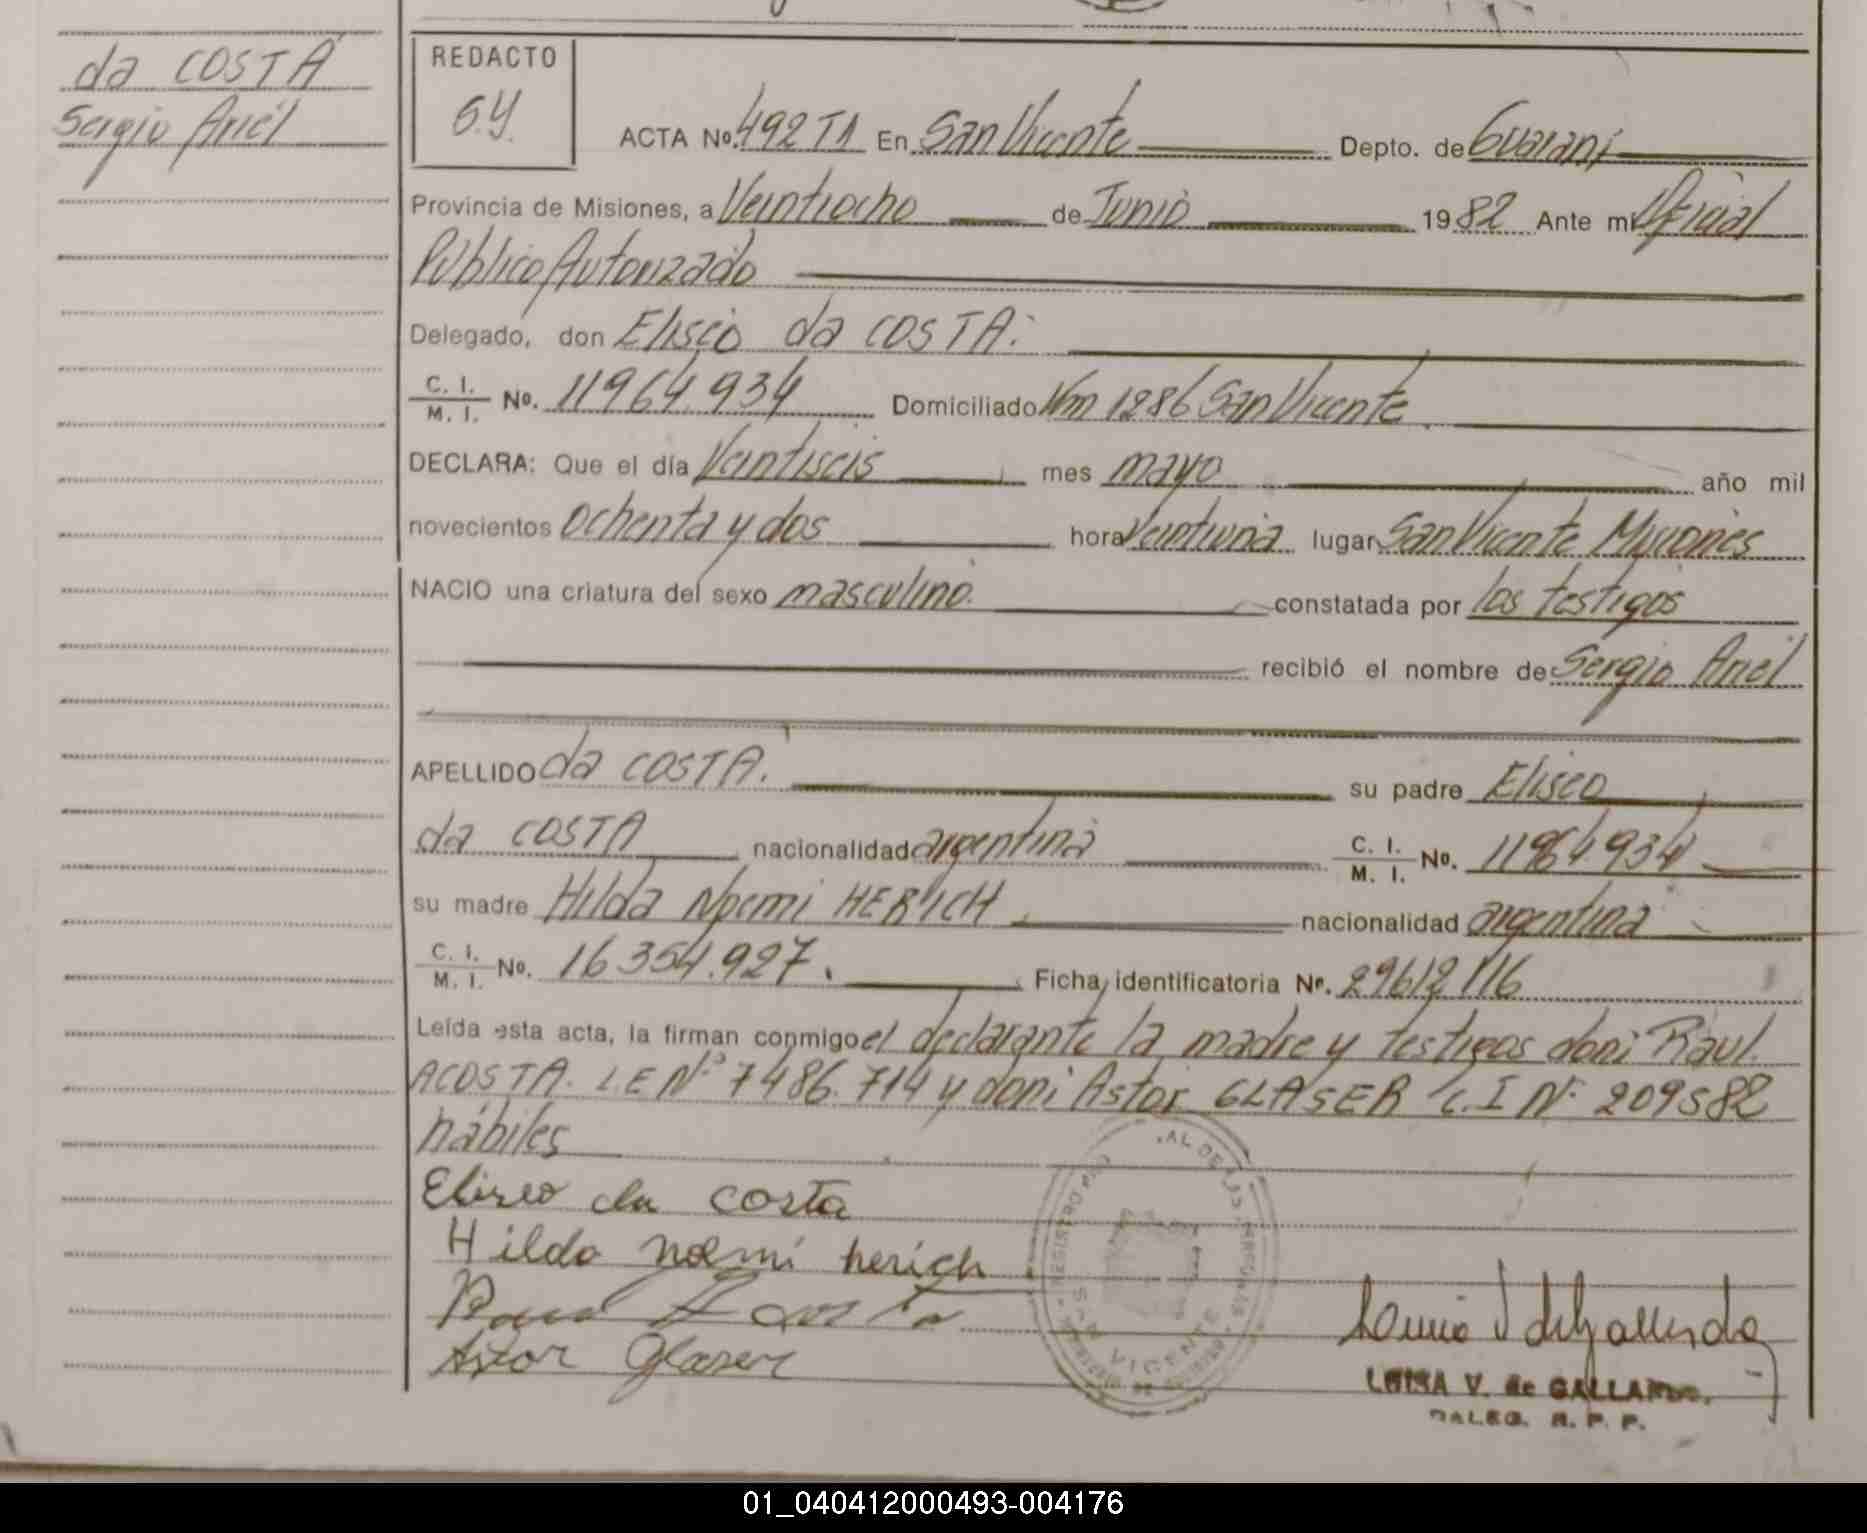 da COSTA
Sergio Ariel
REDACTO
G.Y.
ACTA Nº. 492 T1 En San Vicente Depto. de Guaraní
Provincia de Misiones, a Veintiocho de Junio 1982 Ante mí Oficial
Público Autorizado
Delegado, don Eliseo da COSTA.
C. I. / M. I. Nº. 11964.934 Domiciliado Km 1286 San Vicente
DECLARA: Que el día Veintiseis mes mayo año mil
novecientos ochenta y dos hora Veintiuna lugar San Vicente Misiones
NACIO una criatura del sexo masculino. constatada por los testigos
recibió el nombre de Sergio Ariel
APELLIDO da COSTA. su padre Eliseo
da COSTA nacionalidad argentina C. I. / M. I. Nº. 11964.934
su madre Hilda Noemi HERICH nacionalidad argentina
C. I. / M. I. Nº. 16354.927. Ficha identificatoria Nº. 29612116
Leída esta acta, la firman conmigo el declarante la madre y testigos don: Raul
ACOSTA. L.E Nº 7486.714 y don: Astor GLASER C.I Nº 209582
hábiles
Eliseo da costa
Hilda noemi herich
Raul Acosta
Astor Glaser
VICENTE
LUISA V. de GALLARDO.
DALEG. R. P. P.
01_040412000493-004176